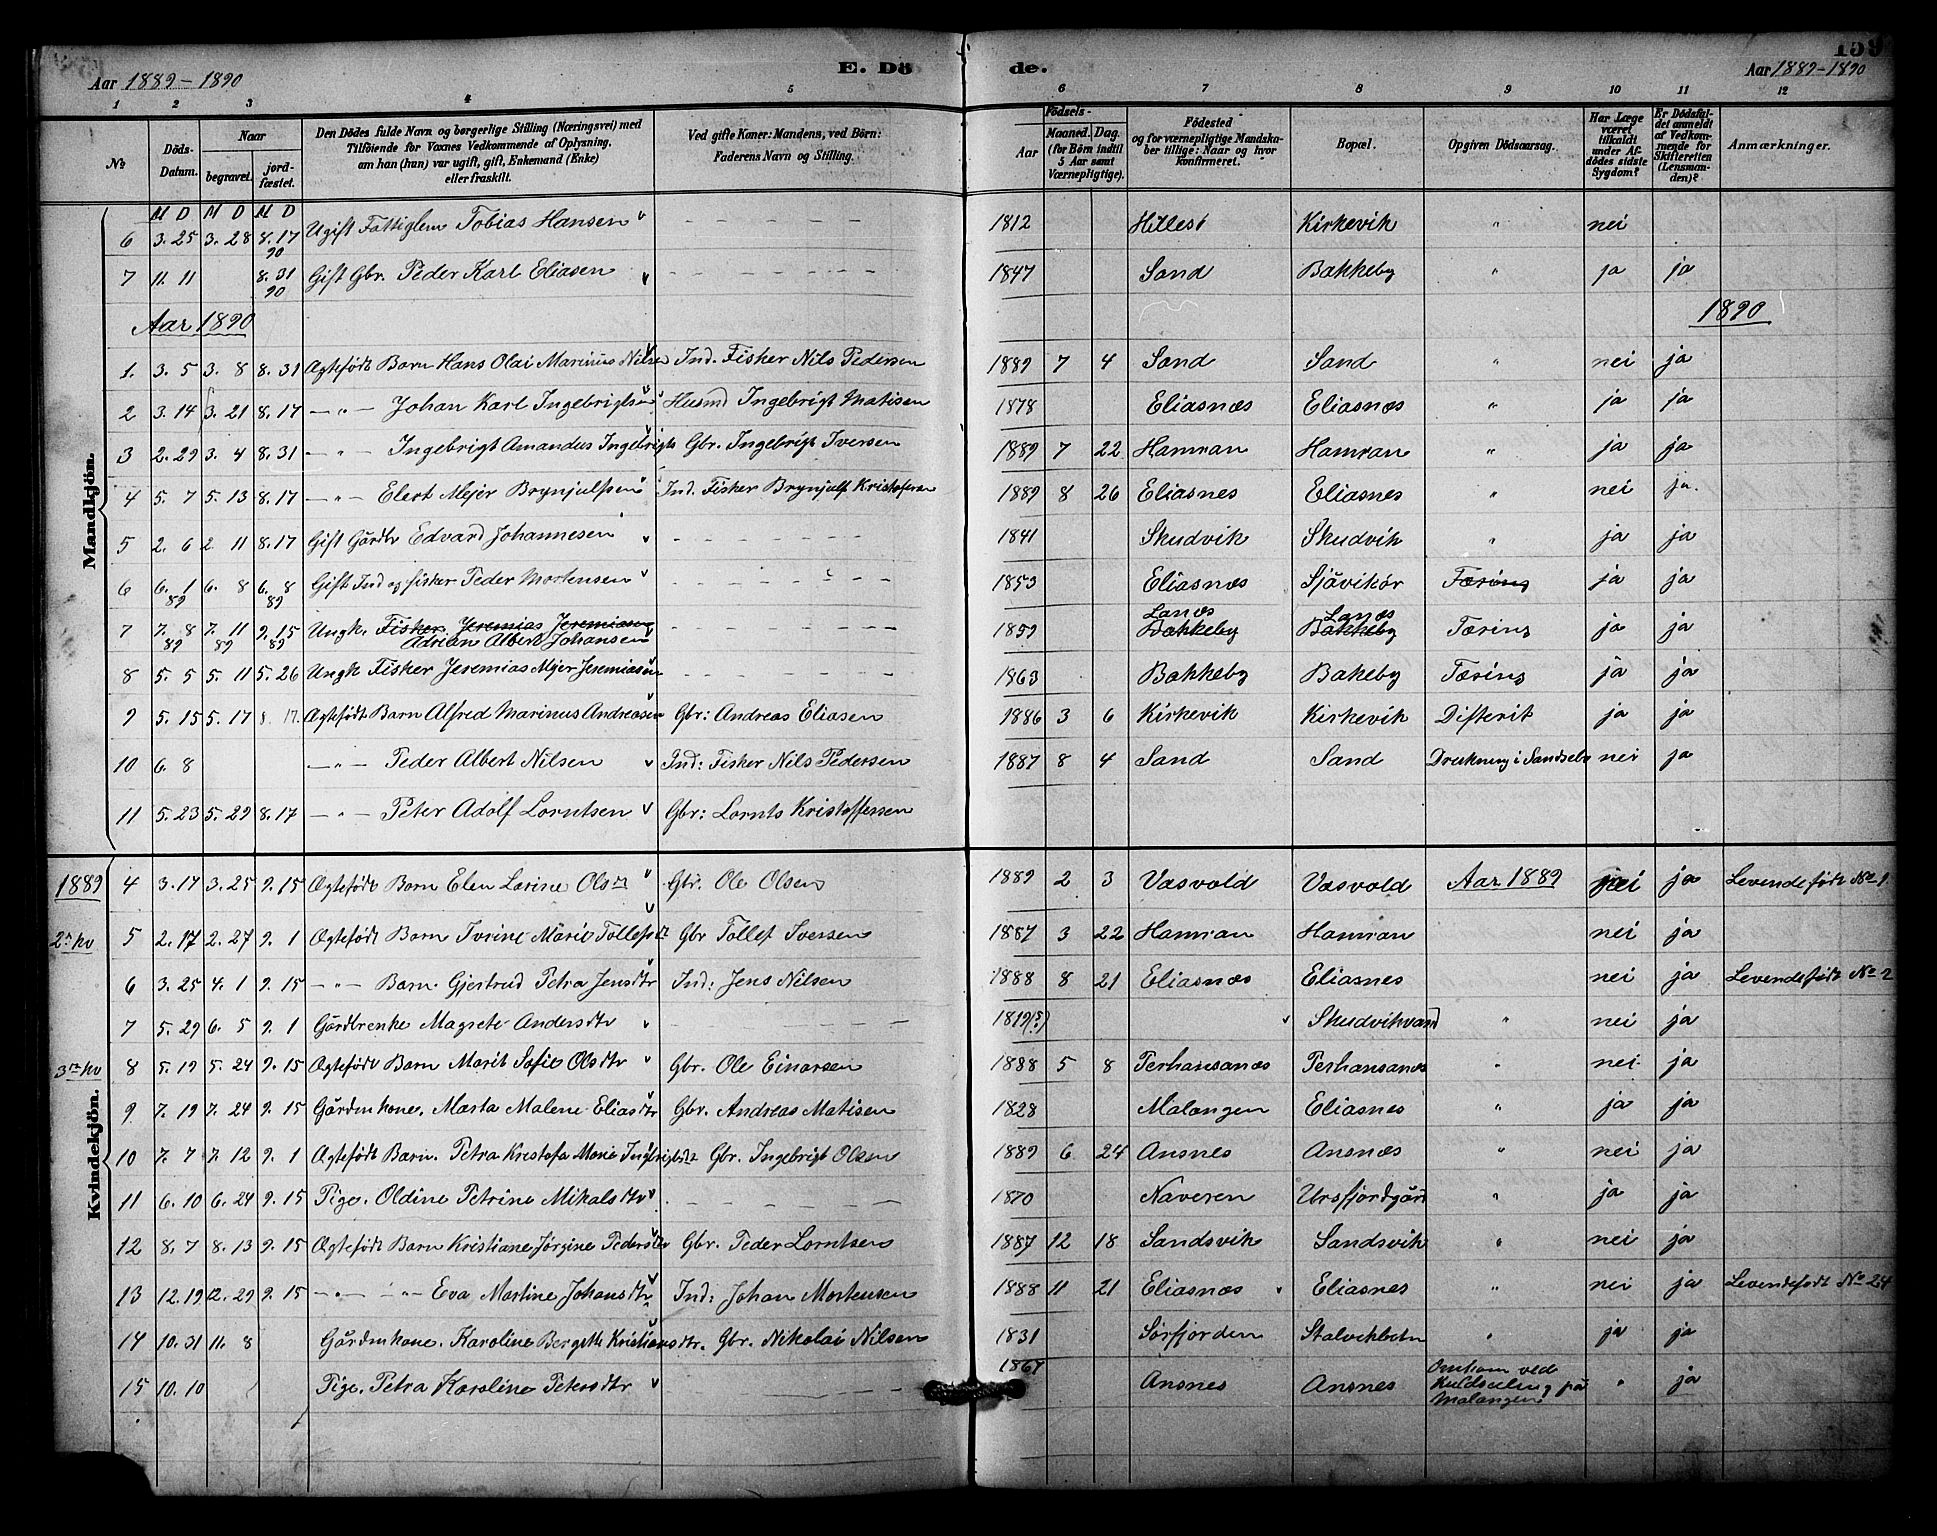 159
Aar 1889-1890 E. Dö de. Aar 1889-1890
1 2 3 4 5 6 7 8 9 10 11 12
№ Döds-Datum. Naar begravet. jordfæstet. Den Dödes fulde Navn og borgerlige Stilling (Næringsvei) med Tilföiende for Voxnes Vedkommende af Oplysning, om han (hun) var ugift, gift, Enkemand (Enke) eller fraskilt. Ved gifte Koner: Mandens, ved Börn: Faderens Navn og Stilling. Födsels- Aar Maaned. Dag. (for Börn indtil 5 Aar samt Værnepligtige). Födested og for værnepligtige Mandskaber tillige: Naar og hvor konfirmeret. Bopæl. Opgiven Dödsaarsag. Har Læge været tilkaldt under Afdödes sidste Sygdom? Er Dödsfaldet anmeldt af Vedkommende for Skifteretten (Lensmanden)? Anmærkninger.
Mandkjön.
M D M D M D
6 3. 25 3. 28 8. 17 90 Ugift Fattiglem Tobias Hansen 1812 Hillest Kirkevik " nei
7 11. 11 8. 31 90 Gift Gbr. Peder Karl Eliasen 1847 Sand Bakkeby " ja ja
Aar 1890 1890
1. 3. 5 3. 8 8. 31 Ægtefødt Barn Hans Olai Marinius Nilsen Ind. Fisker Nils Pedersen 1889 7 4 Sand Sand " nei ja
2 3. 14 3. 21 8. 17 —"— Johan Karl Ingebrigtsen Husmd Ingebrigt Matisen 1878 Eliasnæs Eliasnæs " ja ja
3 2. 29 3. 4 8. 31 —"— Ingebrigt Amandus Ingebrigts Gbr. Ingebrigt Iversen 1889 7 22 Hamran Hamran " ja ja
4 5. 7 5. 13 8. 17 —"— Elert Mejer Brynjulfsen Ind. Fisker Brynjulf Kristofersen 1889 8 26 Eliasnes Eliasnes " nei ja.
5 2. 6 2 11 8. 17 Gift Gårdbr Edvard Johannesen 1841 Skudvik Skudvik " ja ja
6 6. 1 89 6. 8 6. 8 89 Gift Ind og fisker Peder Mortensen 1853 Eliasnæs Sjåvikør Tæring ja ja
7 7. 8 89 7. 11 89 9. 15 89 Ungk. Fisker Jeremias Jeremiasen Adrian Albert Johansen 1859 Lanæs Bakkeby Lanæs Bakkeby Tæring ja ja
8 5. 5 5. 11 5. 26 Ungk Fisker Jeremias Mejer Jeremiasen 1863 Bakkeby Bakeby Tæring ja ja
9 5. 15 5. 17 8. 17. Ægtefødt Barn Alfred Marinus Andreasen Gbr: Andreas Eliasen 1886 3 6 Kirkevik Kirkevik Difterit ja ja
10 6. 8 —"— Peder Albert Nilsen Ind: Fisker Nils Pedersen 1887 8 4 Sand Sand Drukning i Sandselv nei ja
11 5. 23 5. 29 8. 17 —"— Peter Adolf Lorntsen Gbr: Lornts Kristoffersen
Kvindekjön.
1889 4 3. 17 3. 25 9. 15 Ægtefødt Barn Elen Lovine Olsdtr Gbr. Ole Olsen 1889 2 3 Vasvold Vasvold Aar 1889 nei ja Levendefødt No 1
2n kv 5 2. 17 2. 27 9. 1 Ægtefødt Barn Torine Marie Tollefsdt Gbr Tollef Iversen 1887 3 22 Hamran Hamran nei ja
6 3. 25 4. 1 9. 15 —"— Barn. Gjertrud Petra Jensdtr Ind: Jens Nilsen 1888 8 21 Eliasnæs Eliasnes nei ja Levendefødt No 2
7 5. 29 6. 5 9. 1 Gårdbrenke Magrete Andersdtr 1819(?) Skudvikvand " nei ja
3n kv 8 5. 19 5. 24 9. 15 Ægtefødt Barn Marit Sofie Olsdtr Gbr. Ole Einarsen 1888 5 8 Perhansanæs Perhansanæs " nei ja
9 7. 19 7. 24 9. 15 Gårdmkone. Marta Malene Eliasdtr Gbr. Andreas Matisen 1828 Malangen Eliasnes " ja ja
10 7. 7 7. 12 9. 1 Ægtefødt Barn. Petra Kristofa Marie Ingebrigtsdt Gbr. Ingebrigt Olsen 1889 6 24 Ansnes Ansnæs " nei ja
11 6. 10 6. 24 9. 15 Pige. Oldine Petrine Mikalsdtr 1870 Naveren Ursfjordgård " ja ja
12 8. 7 8. 13 9. 15 Ægtefødt Barn Kristiane Jørgine Pedersdtr Gbr. Peder Lorntsen 1887 12 18 Sandsvik Sandsvik " nei ja
13 12. 19 12. 29 9. 15 —"— —"— Eva Martine Johansdtr Ind: Johan Mortensen 1888 11 21 Eliasnæs Eliasnes " nei ja Levendefødt No 24
14 10. 31 11. 8 Gårdmkone. Karoline Bergitte Kristiansdtr. Gbr. Nikolai Nilsen 1831 Sørfjorden Stalvikbotn " ja ja
15 10. 10 Pige. Petra Karoline Petersdtr 1867 Ansnes Ansnes Omkom ved Kuldseiling på Malangen " ja